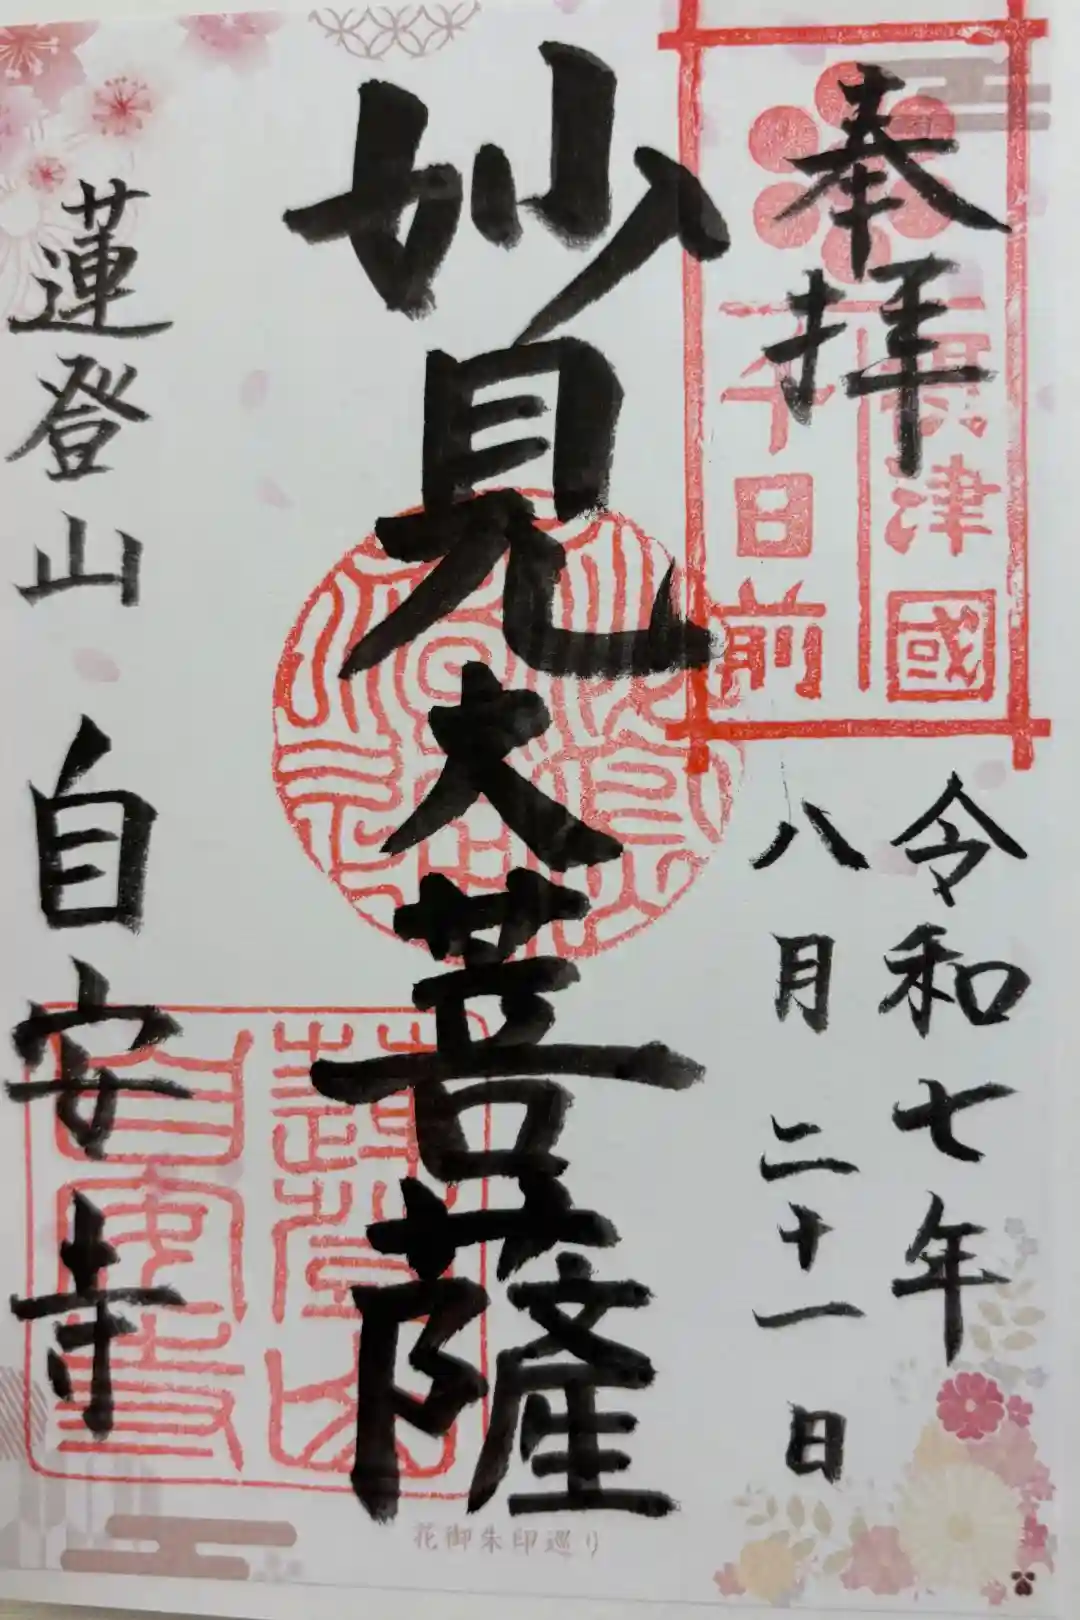 奉拝
摂津國
千日前
令和七年
八月二十一日
妙見大菩薩
蓮登山 自安寺
自安寺
花御朱印巡り